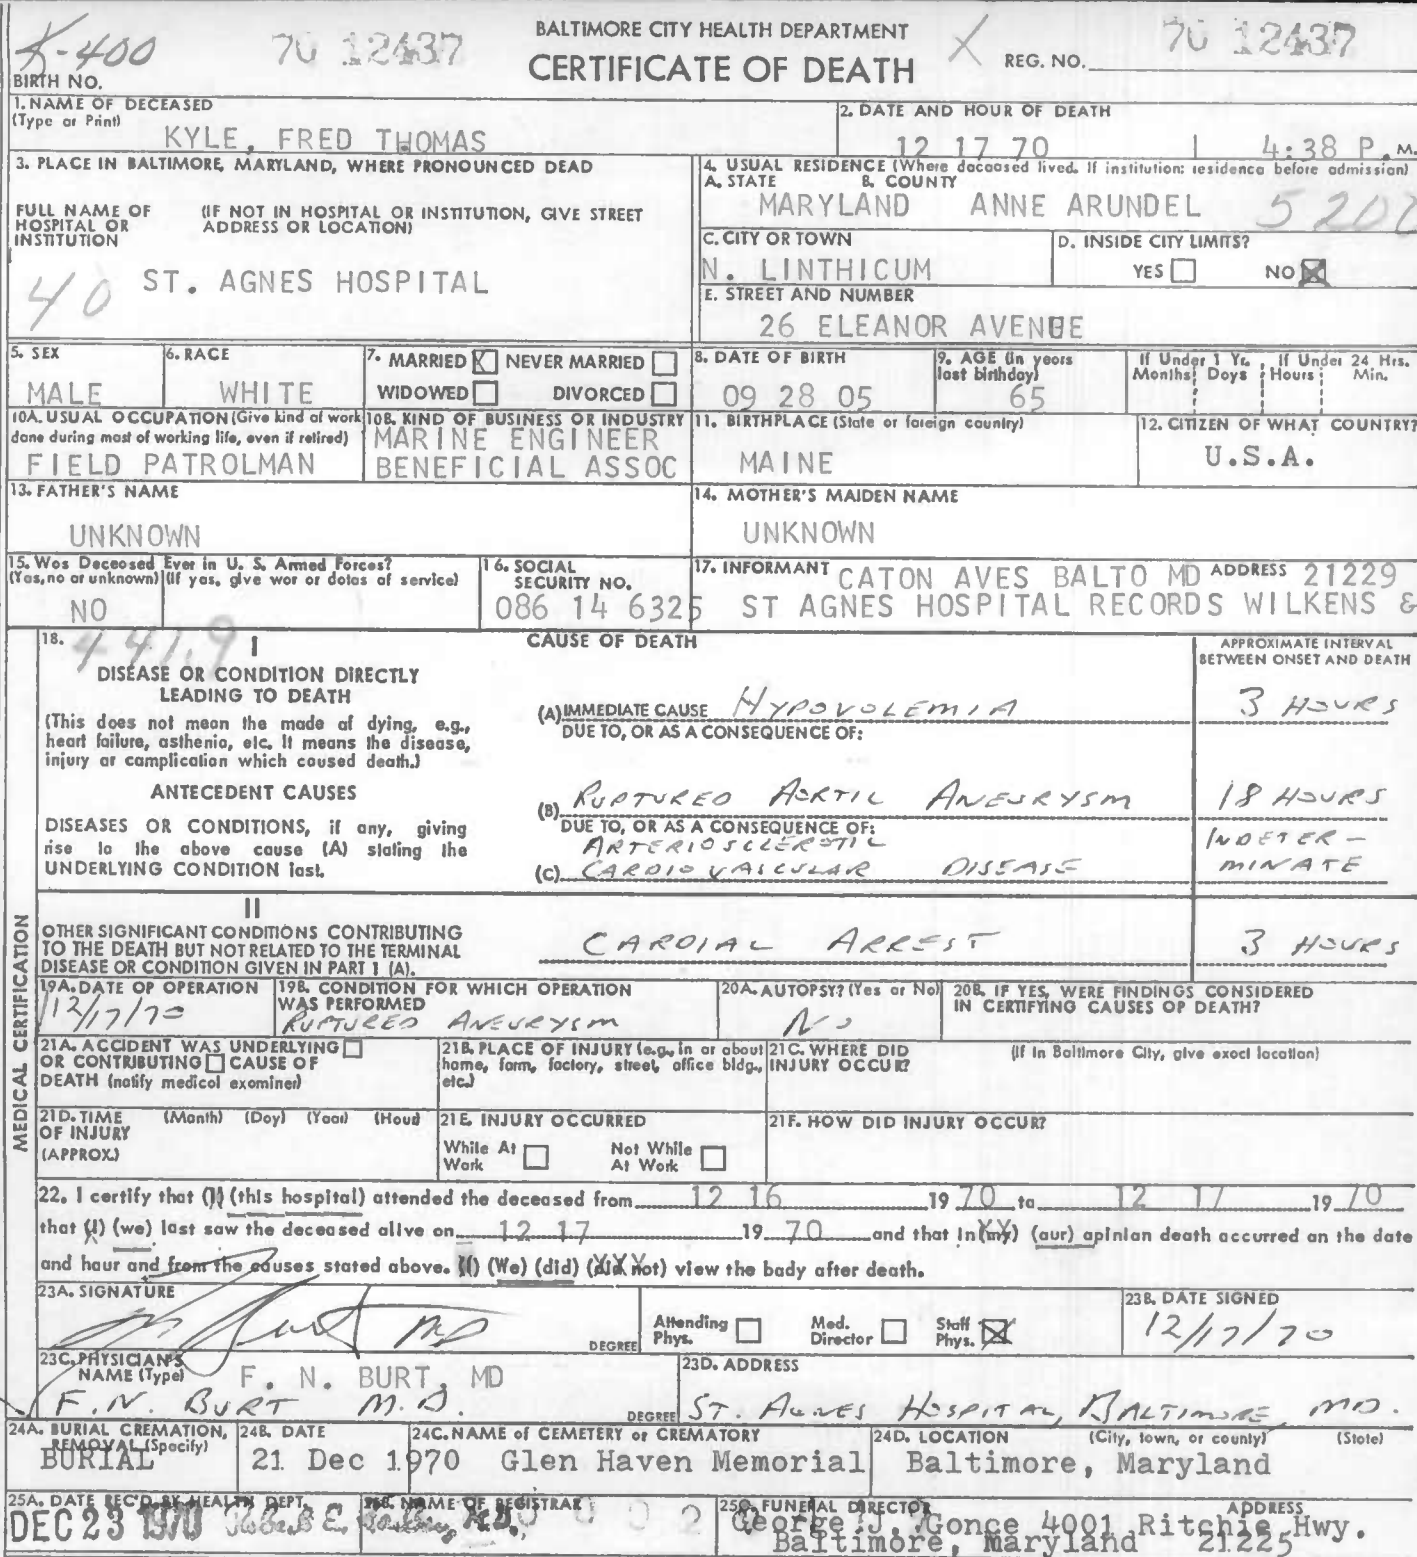 BALTIMORE CITY HEALTH DEPARTMENT
CERTIFICATE OF DEATH
K-400
70 12437
X
REG. NO. 70 12437
BIRTH NO.
1. NAME OF DECEASED
(Type or Print)
KYLE, FRED THOMAS
2. DATE AND HOUR OF DEATH
12 17 70 4:38 P. M.
3. PLACE IN BALTIMORE, MARYLAND, WHERE PRONOUNCED DEAD
FULL NAME OF HOSPITAL OR INSTITUTION
(IF NOT IN HOSPITAL OR INSTITUTION, GIVE STREET ADDRESS OR LOCATION)
40
ST. AGNES HOSPITAL
4. USUAL RESIDENCE (Where deceased lived. If institution: residence before admission)
A. STATE B. COUNTY
MARYLAND ANNE ARUNDEL
C. CITY OR TOWN
N. LINTHICUM
D. INSIDE CITY LIMITS?
YES NO X
E. STREET AND NUMBER
26 ELEANOR AVENUE
5. SEX
MALE
6. RACE
WHITE
7. MARRIED X NEVER MARRIED
WIDOWED DIVORCED
8. DATE OF BIRTH
09 28 05
9. AGE (In years last birthday)
65
If Under 1 Yr. If Under 24 Hrs.
Months Days Hours Min.
10A. USUAL OCCUPATION (Give kind of work done during most of working life, even if retired)
FIELD PATROLMAN
10B. KIND OF BUSINESS OR INDUSTRY
MARINE ENGINEER
BENEFICIAL ASSOC
11. BIRTHPLACE (State or foreign country)
MAINE
12. CITIZEN OF WHAT COUNTRY?
U.S.A.
13. FATHER'S NAME
UNKNOWN
14. MOTHER'S MAIDEN NAME
UNKNOWN
15. Was Deceased Ever in U. S. Armed Forces?
(Yes, no or unknown) (If yes, give war or dates of service)
NO
16. SOCIAL SECURITY NO.
086 14 6325
17. INFORMANT CATON AVES BALTO MD ADDRESS 21229
ST AGNES HOSPITAL RECORDS WILKENS &
MEDICAL CERTIFICATION
18. 441.9
I
CAUSE OF DEATH
APPROXIMATE INTERVAL BETWEEN ONSET AND DEATH
DISEASE OR CONDITION DIRECTLY
LEADING TO DEATH
(This does not mean the mode of dying, e.g.,
heart failure, asthenia, etc. It means the disease,
injury or complication which caused death.)
(A) IMMEDIATE CAUSE HYPOVOLEMIA 3 HOURS
DUE TO, OR AS A CONSEQUENCE OF:
ANTECEDENT CAUSES
DISEASES OR CONDITIONS, if any, giving
rise to the above cause (A) stating the
UNDERLYING CONDITION last.
(B) RUPTURED AORTIC ANEURYSM 18 HOURS
DUE TO, OR AS A CONSEQUENCE OF:
ARTERIOSCLEROTIC INDETER-
(C) CARDIOVASCULAR DISEASE MINATE
II
OTHER SIGNIFICANT CONDITIONS CONTRIBUTING
TO THE DEATH BUT NOT RELATED TO THE TERMINAL
DISEASE OR CONDITION GIVEN IN PART I (A).
CARDIAC ARREST 3 HOURS
19A. DATE OF OPERATION
12/17/70
19B. CONDITION FOR WHICH OPERATION WAS PERFORMED
RUPTURED ANEURYSM
20A. AUTOPSY? (Yes or No)
NO
20B. IF YES, WERE FINDINGS CONSIDERED IN CERTIFYING CAUSES OF DEATH?
21A. ACCIDENT WAS UNDERLYING
OR CONTRIBUTING CAUSE OF
DEATH (notify medical examiner)
21B. PLACE OF INJURY (e.g., in or about home, farm, factory, street, office bldg., etc.)
21C. WHERE DID INJURY OCCUR?
(If in Baltimore City, give exact location)
21D. TIME OF INJURY (APPROX.)
(Month) (Day) (Year) (Hour)
21E. INJURY OCCURRED
While At Work Not While At Work
21F. HOW DID INJURY OCCUR?
22. I certify that (I) (this hospital) attended the deceased from 12 16 19 70 to 12 17 19 70
that (I) (we) last saw the deceased alive on 12 17 19 70 and that in (my) (our) opinion death occurred on the date
and hour and from the causes stated above. (I) (We) (did) (did not) view the body after death.
23A. SIGNATURE
Burt MD
DEGREE
Attending Phys. Med. Director Staff Phys. X
23B. DATE SIGNED
12/17/70
23C. PHYSICIAN'S NAME (Type)
F. N. BURT, MD
F. N. BURT M.D.
DEGREE
23D. ADDRESS
ST. AGNES HOSPITAL, BALTIMORE, MD.
24A. BURIAL CREMATION, REMOVAL (Specify)
BURIAL
24B. DATE
21 Dec 1970
24C. NAME of CEMETERY or CREMATORY
Glen Haven Memorial
24D. LOCATION (City, town, or county) (State)
Baltimore, Maryland
25A. DATE REC'D BY HEALTH DEPT.
DEC 23 1970
NAME OF REGISTRAR
FUNERAL DIRECTOR ADDRESS
George J. Gonce 4001 Ritchie Hwy.
Baltimore, Maryland 21225